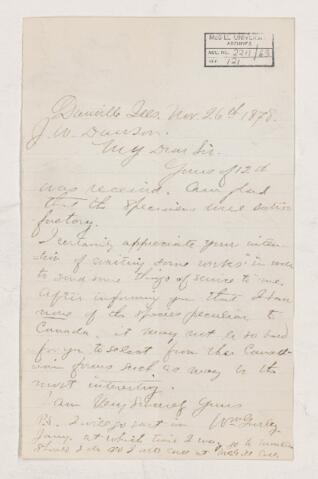 McGILL UNIVERSITY
ARCHIVES
ACC. NO. 2211/63
REF. 121
Danville Ills. Nov. 26th 1878.
J. W. Dawson.
My Dear Sir.
Yours of 12th
was received. Am glad
that the specimens were satis-
factory.
I certainly appreciate your inten-
tion of writing some works in order
to send some things of service to me.
After informing you that I have
none of the species peculiar to
Canada. it may not be so hard
for you to select from the Canad-
ian forms such as may be the
most interesting.
I am Very Sincerely Yours
Wm Gurley
P.S. I will go east in
Jany. at which time I may go to
Should I do so I will call at